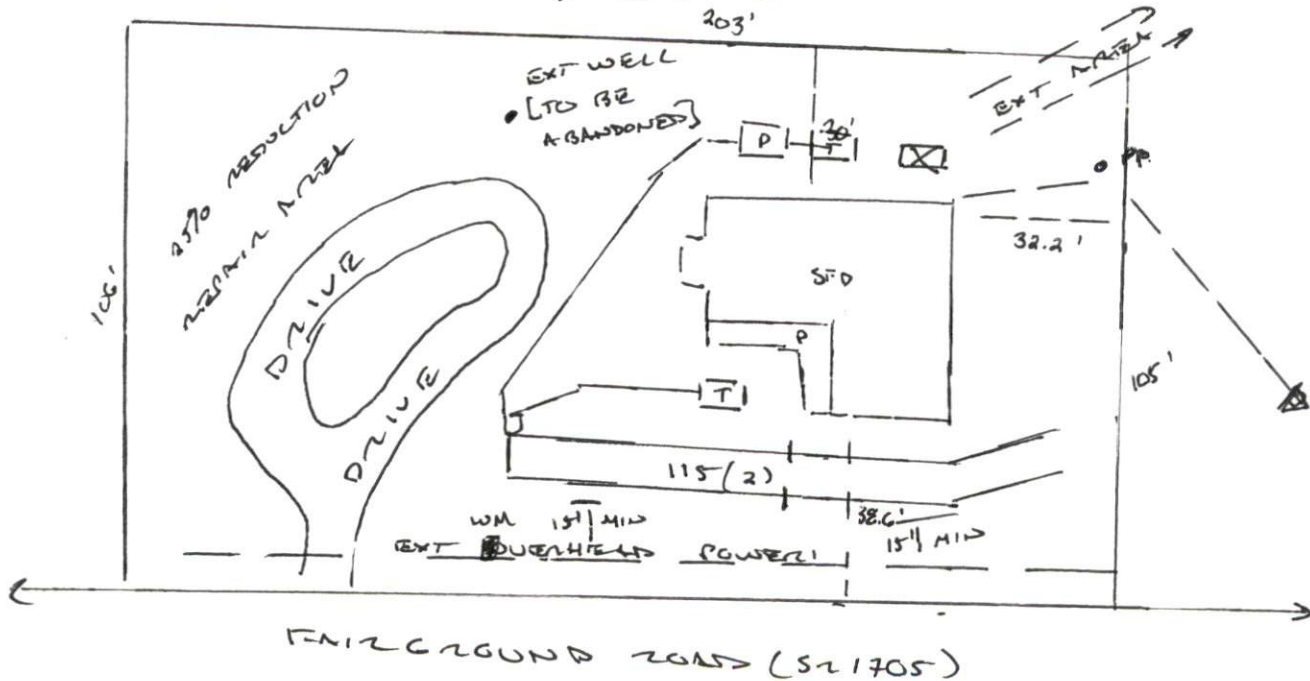 203'
EXT WELL
[TO BE
ABANDONED]
EXT AREA
25% REDUCTION
REPAIR AREA
P
30'
T
PP.
32.2'
SFD
106'
DRIVE
P
DRIVE
T
105'
115(2)
38.6'
WM 15' MIN
15' MIN
EXT OVERHEAD POWER
FAIRGROUND ROAD (SR1705)